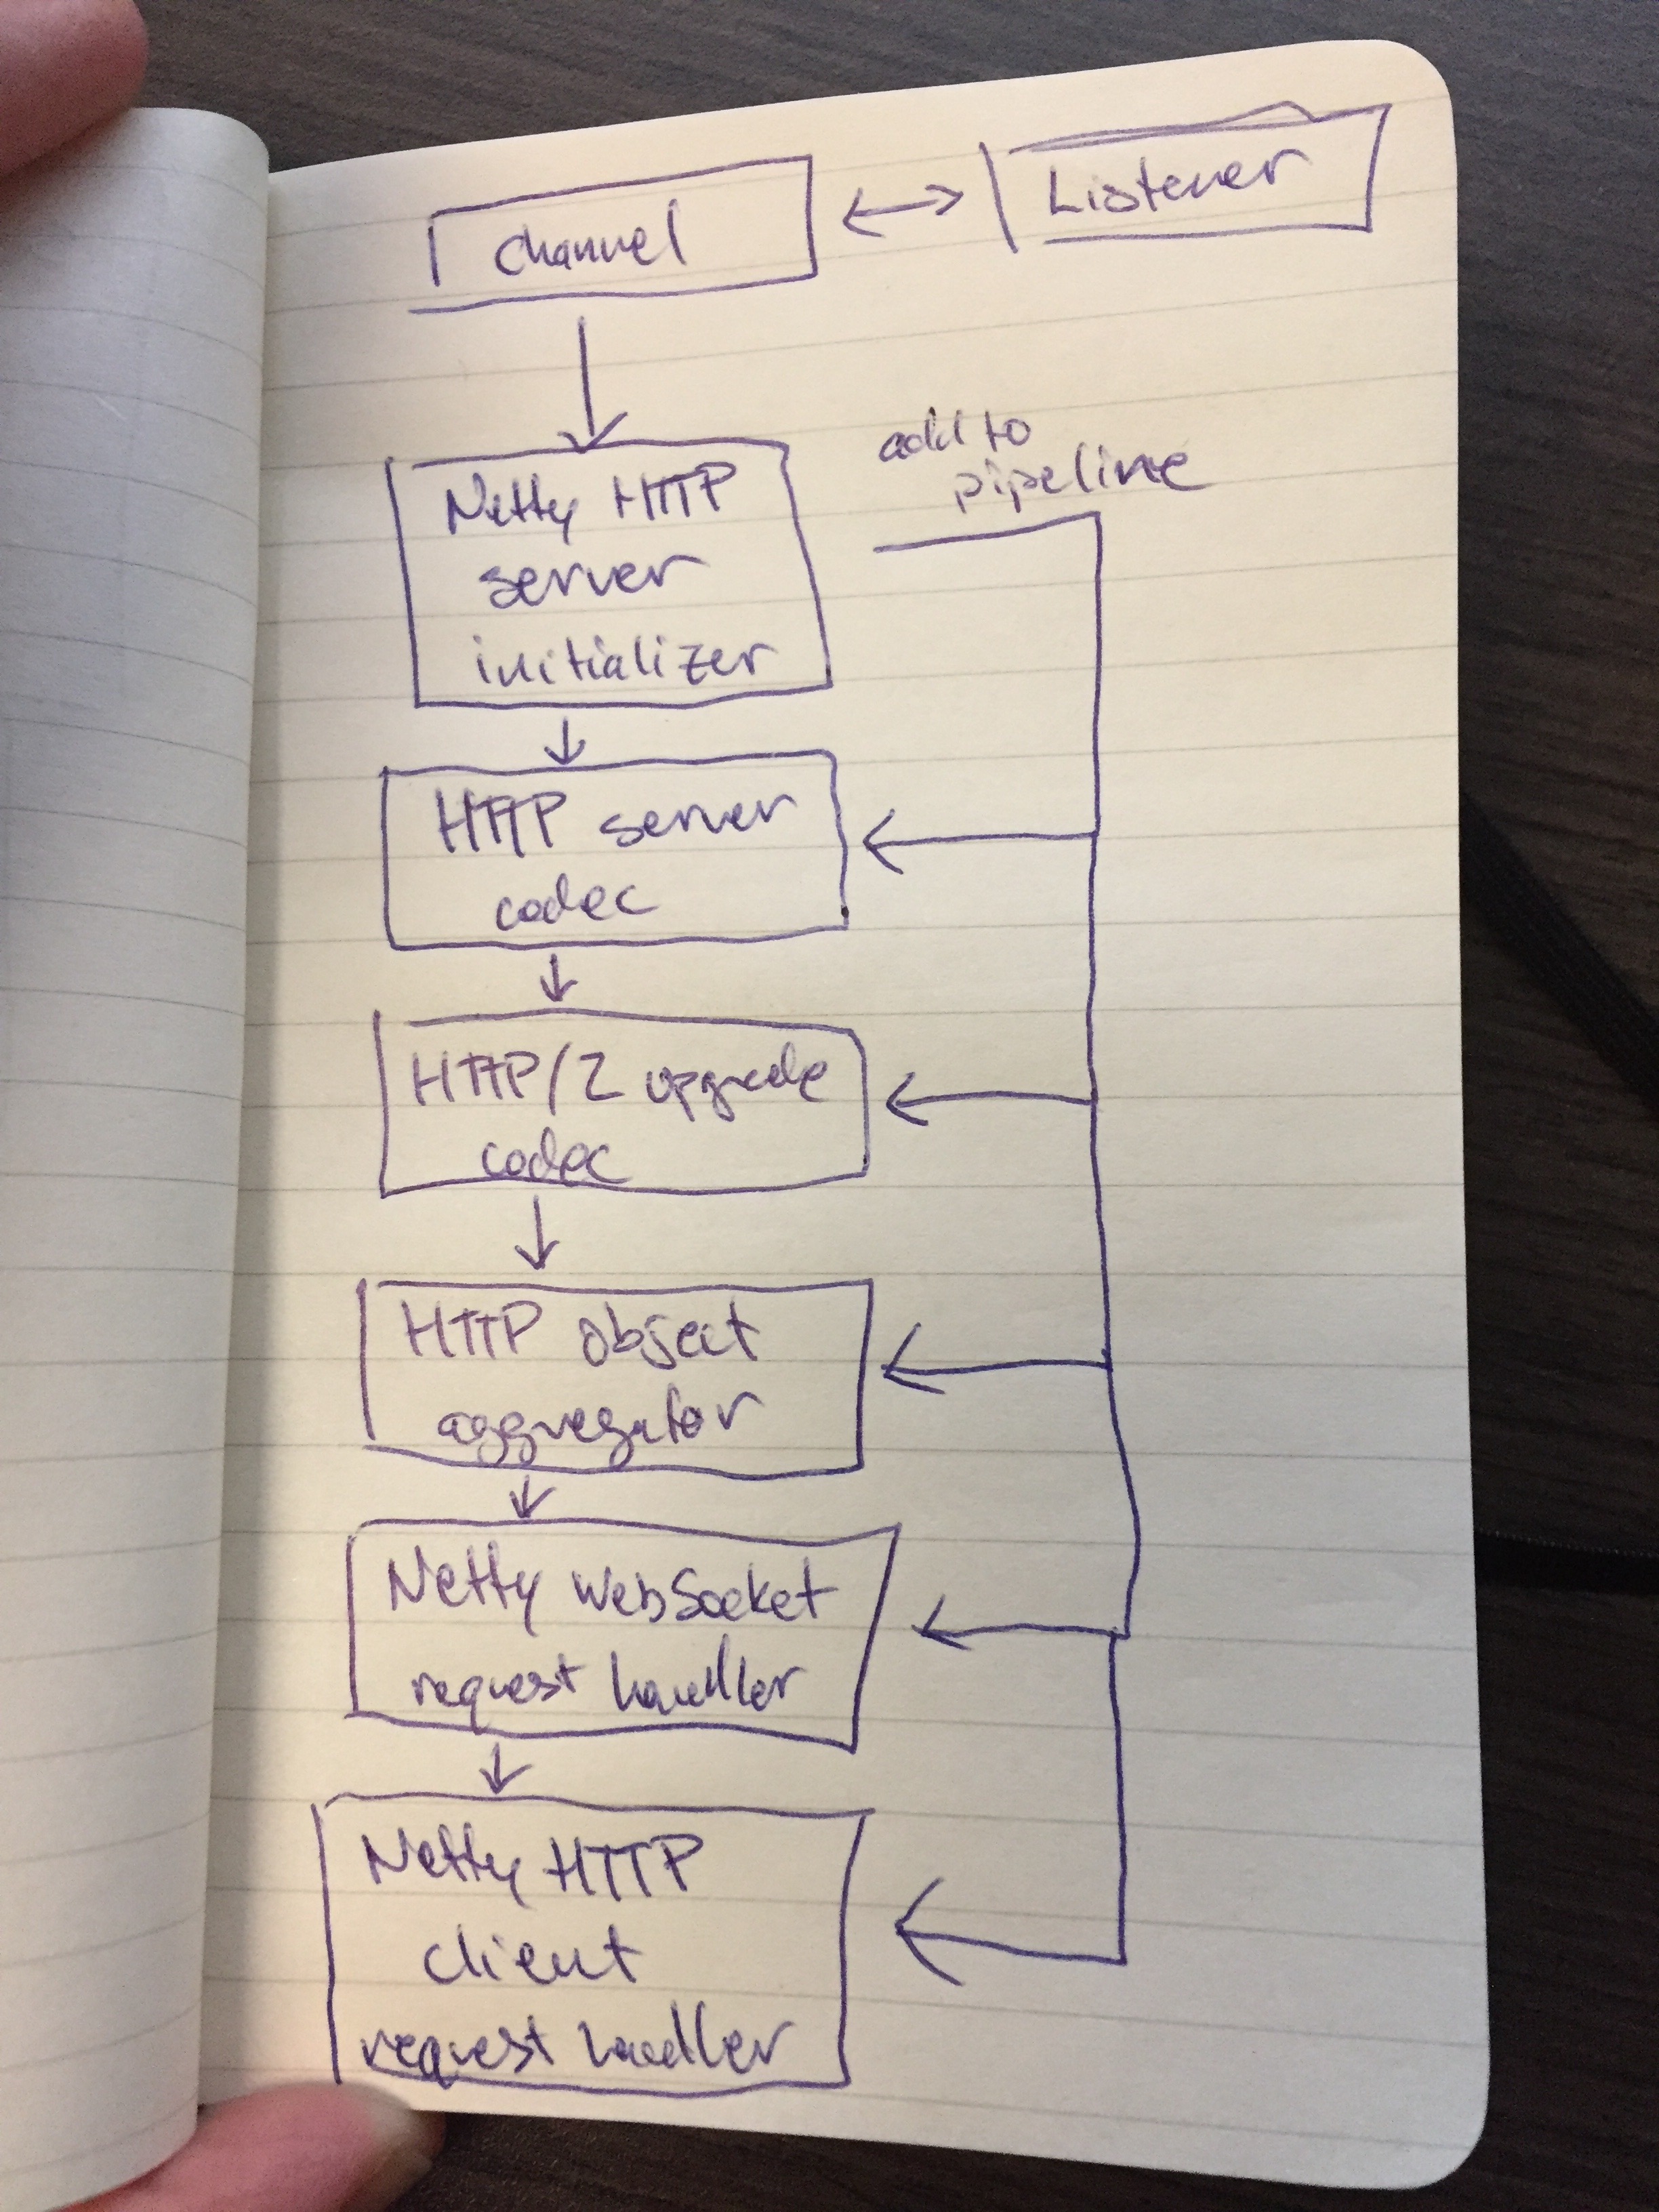 Channel
Listener
add to
pipeline
Netty HTTP
server
initializer
HTTP server
codec
HTTP/2 upgrade
codec
HTTP object
aggregator
Netty WebSocket
request handler
Netty HTTP
client
request handler